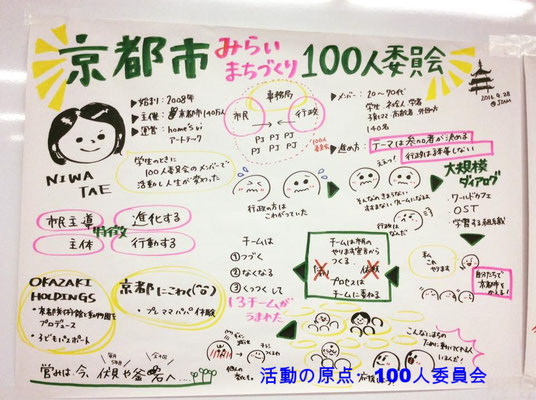 京都市 みらいまちづくり 100人委員会
2016.9.28
▶始まり:2008年
▶主催:京都市140万人
▶運営:home's vi
事務局
市民
行政
PJ PJ PJ
PJ PJ PJ
100人委員会
▶メンバー:20〜70代
140名
▶進め方
テーマは参加者が決める
行政は準備しない
学生のときに
100人委員会のメンバーで
活動し人生が変わった
NIWA
TAE
行政の方は
こわがっていた
大規模
ダイアログ
・ワールドカフェ
・OST
・学習する組織
市民主導
進化する
特徴
主体
行動する
チームは
①つづく
②なくなる
③くっつくして
13チームが
うまれた
チームは市民の
やります宣言から
つくる
プロセスは
チームに委ねる
行政はなんだ
私これやります
自分たちで
京都市を
かえる!
OKAZAKI
HOLDINGS
プロデュース
・子どもパスポート
京都にこわく(^o^)
・プレママパパ体験
こんなにまちの
ために動いてくれる人
いるんだ!
営みは、今、伏見や
活動の原点・100人委員会